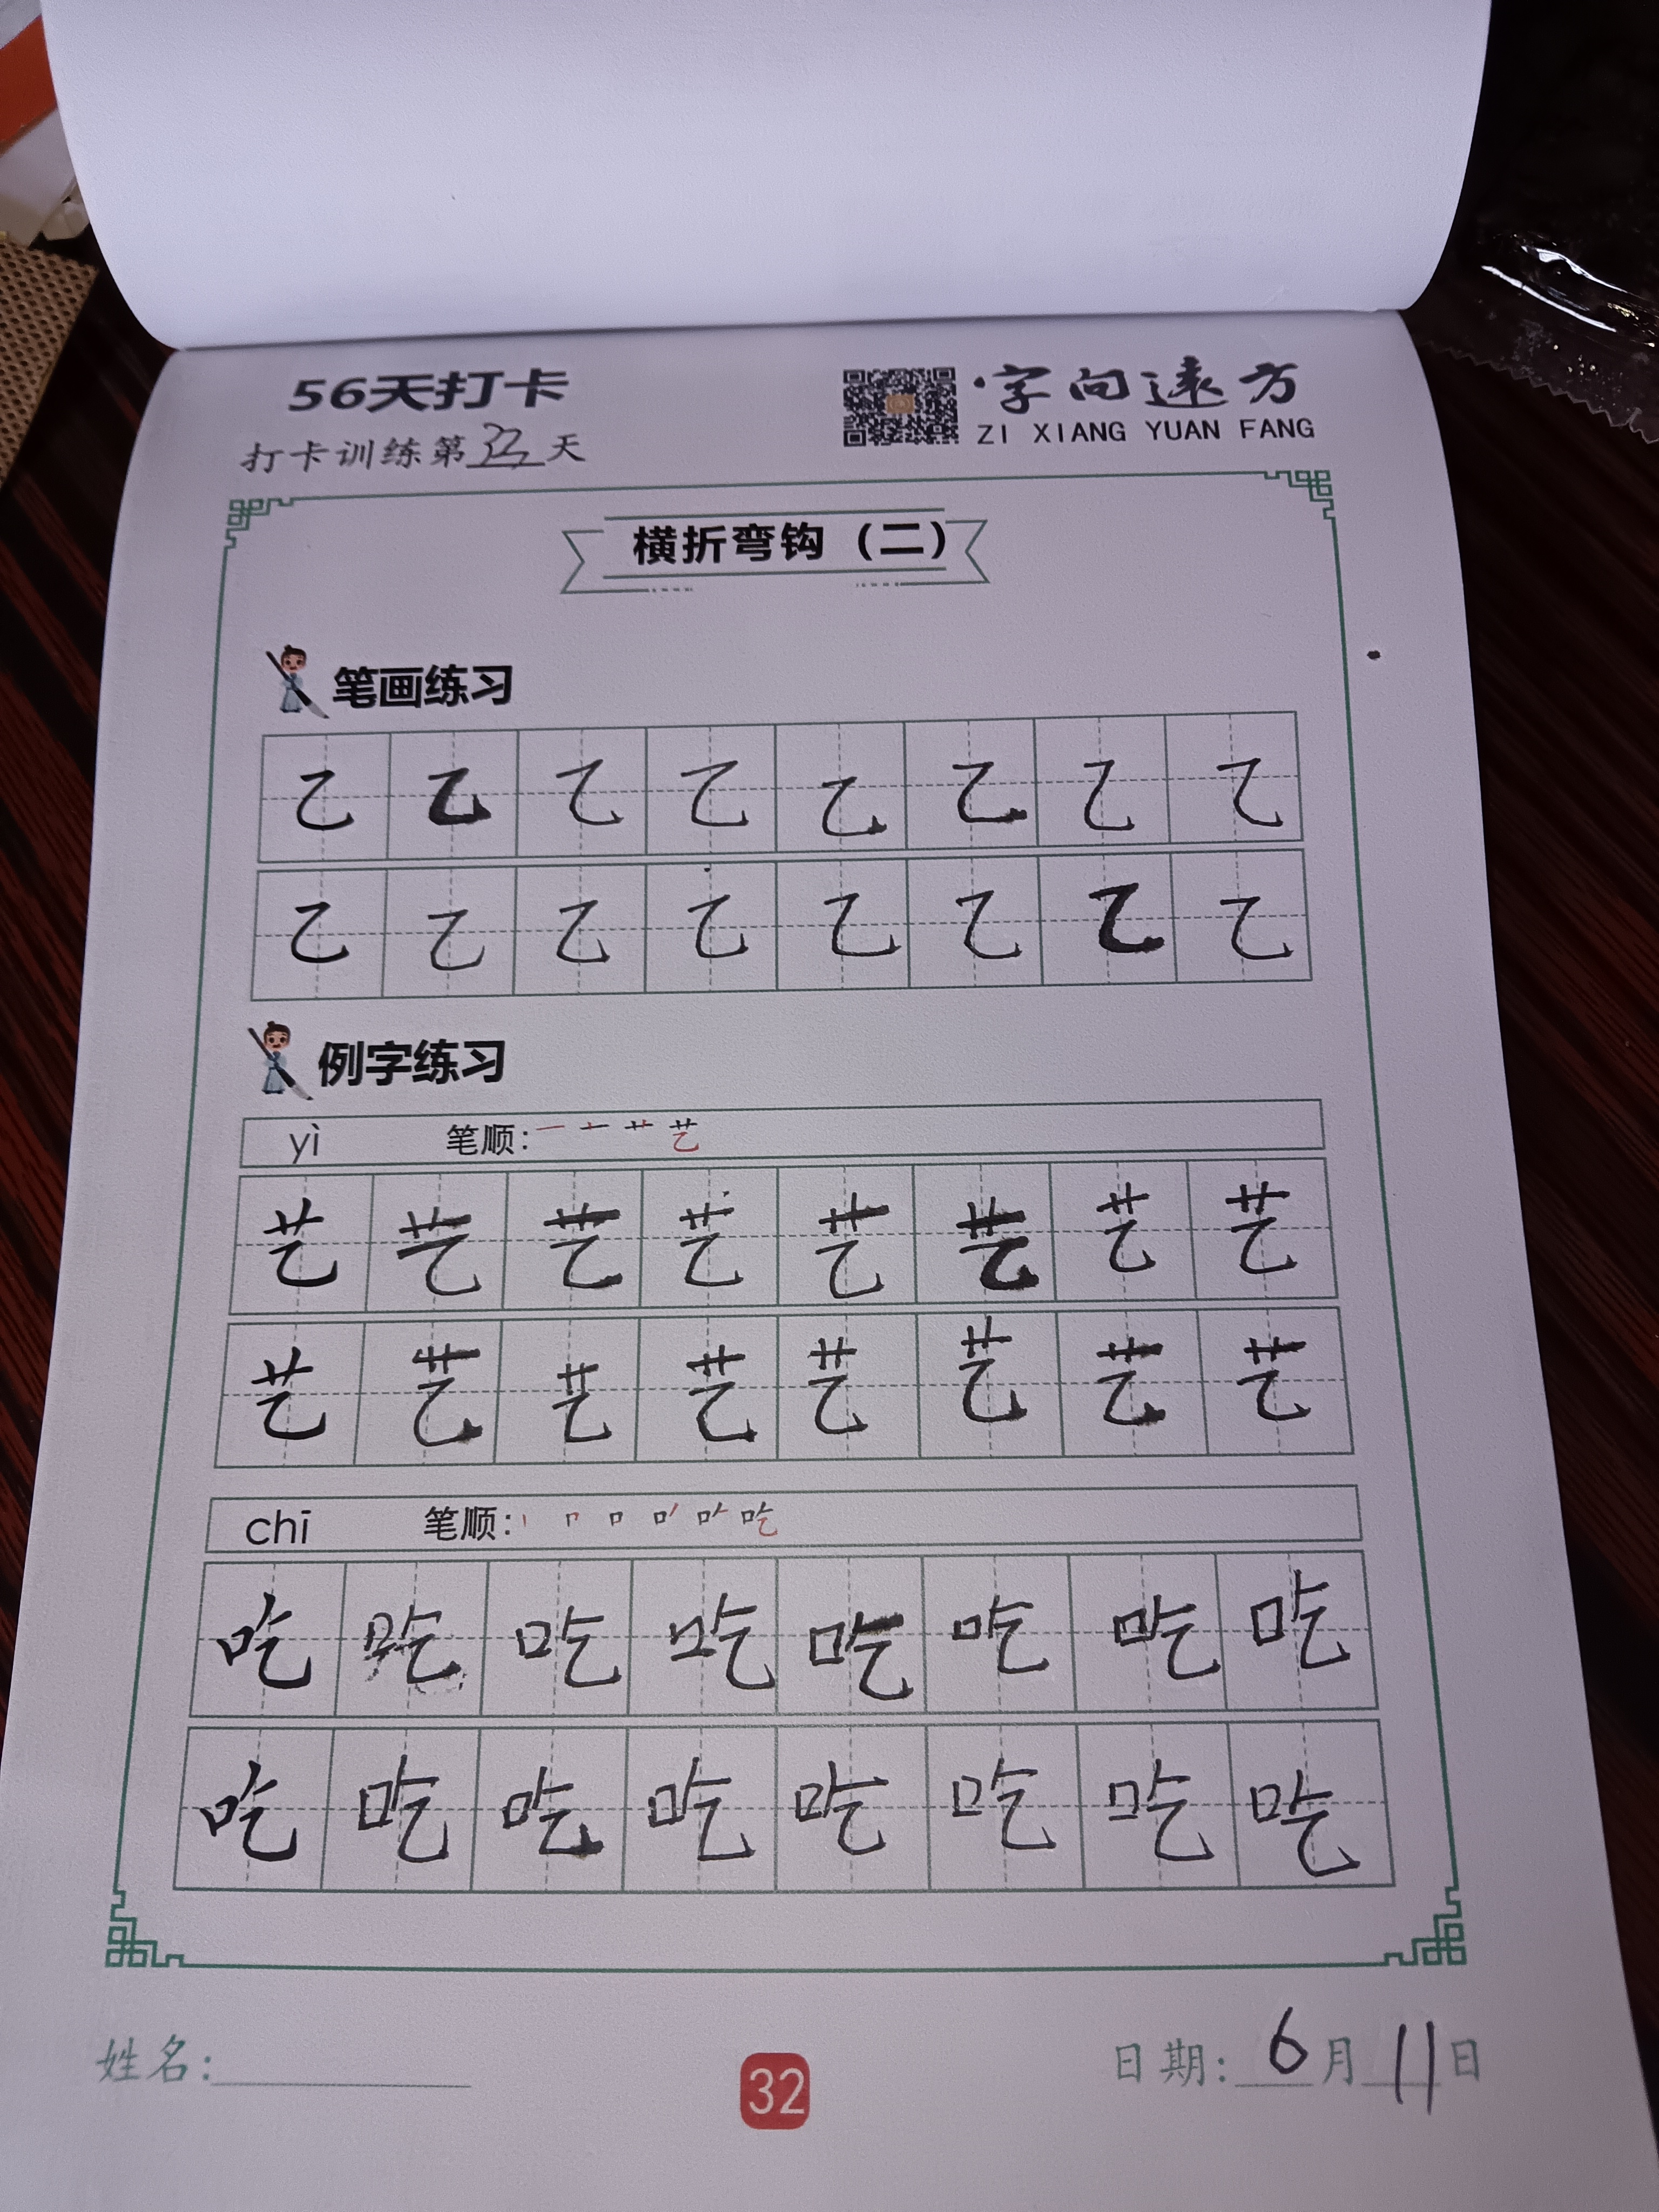 56天打卡
字向远方
ZI XIANG YUAN FANG
打卡训练第32天
横折弯钩（二）
笔画练习
乙 乙 乙 乙 乙 乙 乙 乙
乙 乙 乙 乙 乙 乙 乙 乙
例字练习
yì 笔顺：一 艹 艺
艺 艺 艺 艺 艺 艺 艺 艺
艺 艺 艺 艺 艺 艺 艺 艺
chī 笔顺：丨 口 吃
吃 吃 吃 吃 吃 吃 吃 吃
吃 吃 吃 吃 吃 吃 吃 吃
姓名：
32
日期：6月11日